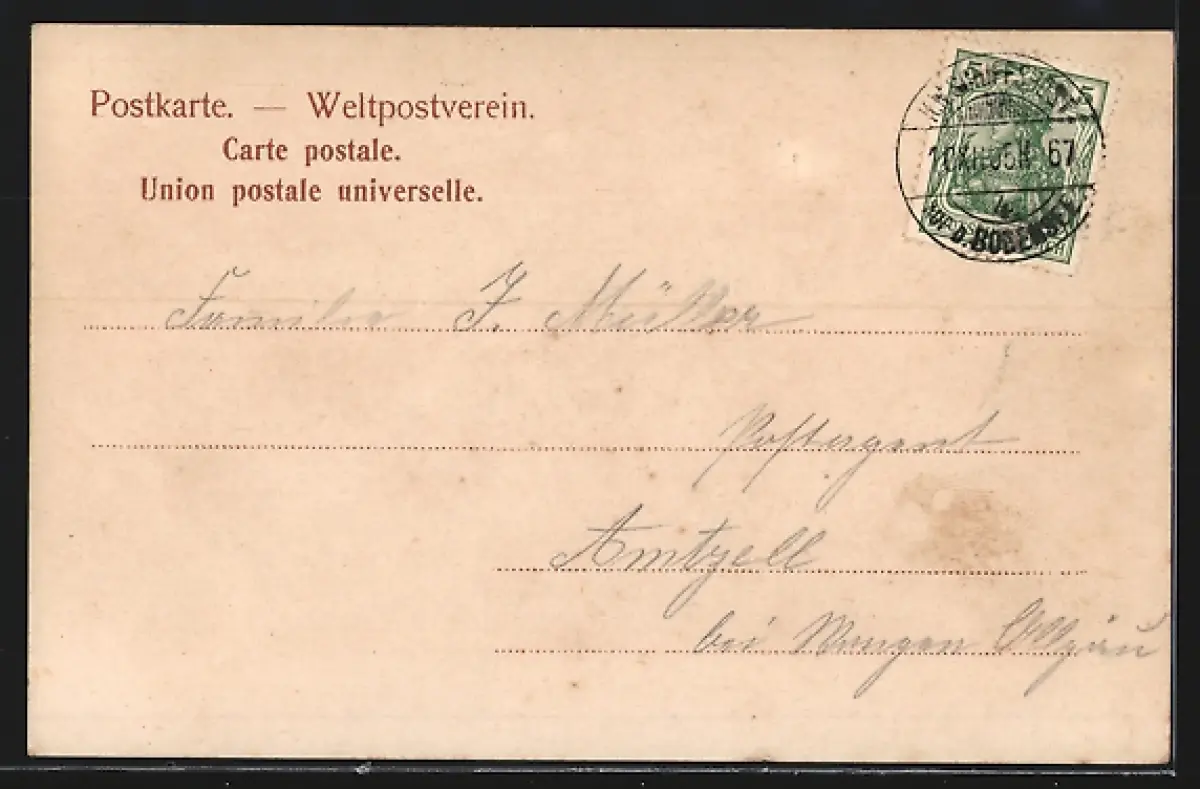 Postkarte. — Weltpostverein.
Carte postale.
Union postale universelle.
5
67
AUF D. BODENSEE
Familie J. Müller
Postagent
Amtzell
bei Wangen Allgäu